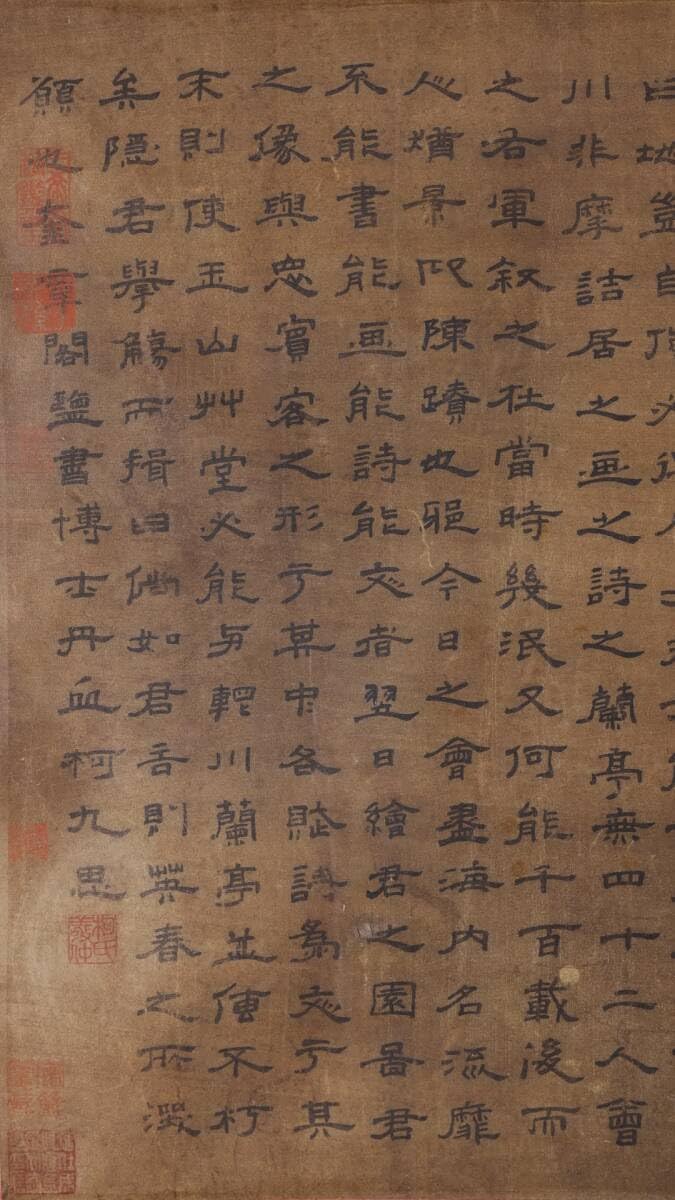 地豈自
川非摩詰居之画之詩之蘭亭無四十二人會
之右軍叙之在當時幾泯又何能千百載後而
心猶景卬陳蹟也邪今日之會盡海内名流靡
不能書能画能詩能文者翌日繪君之園啚君
之像與忠賓客之形于其中各賦詩為文于其
末則使玉山艸堂必能与輞川蘭亭並傳不朽
矣隐君舉觴而揖曰倘如君言則英春之所深
願也奎章閣鑒書博士丹丘柯九思
柯氏敬仲